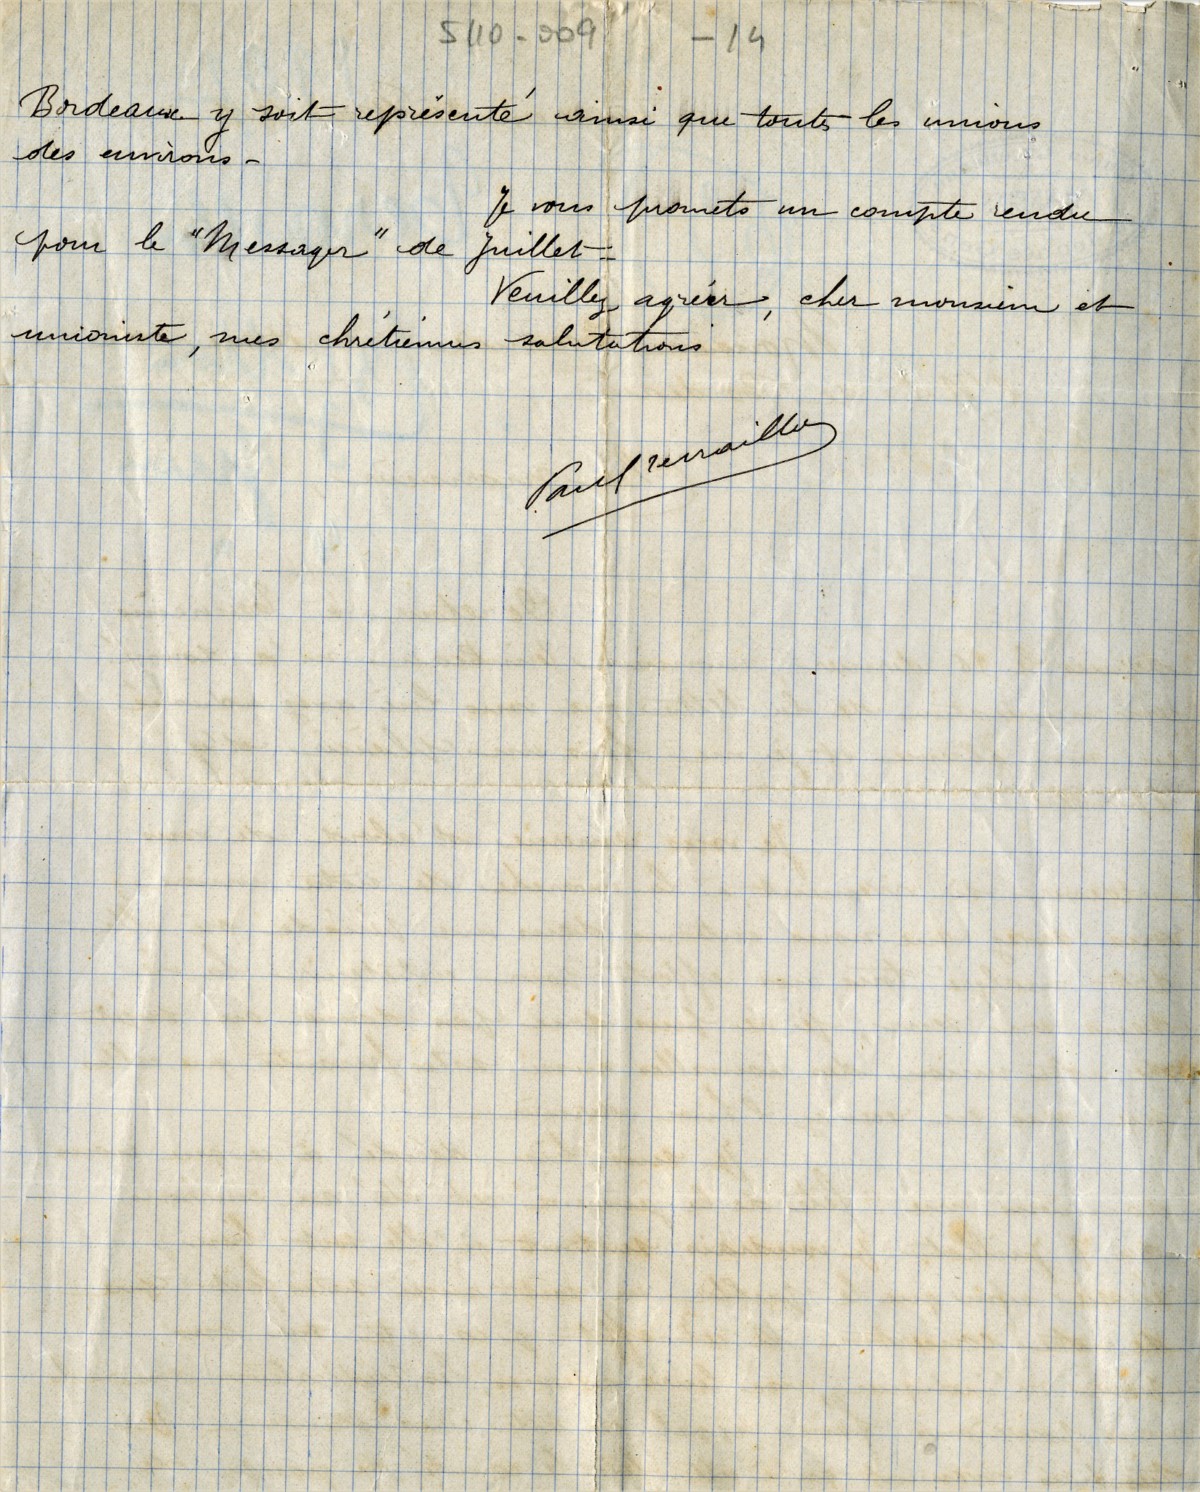 5110-209 -14
Bordeaux y soit représenté ainsi que toutes les unions
des environs -
Je vous promets un compte rendu
pour le "Messager" de Juillet =
Veuillez agréer, cher monsieur et
unioniste, mes chrétiennes salutations
Paul